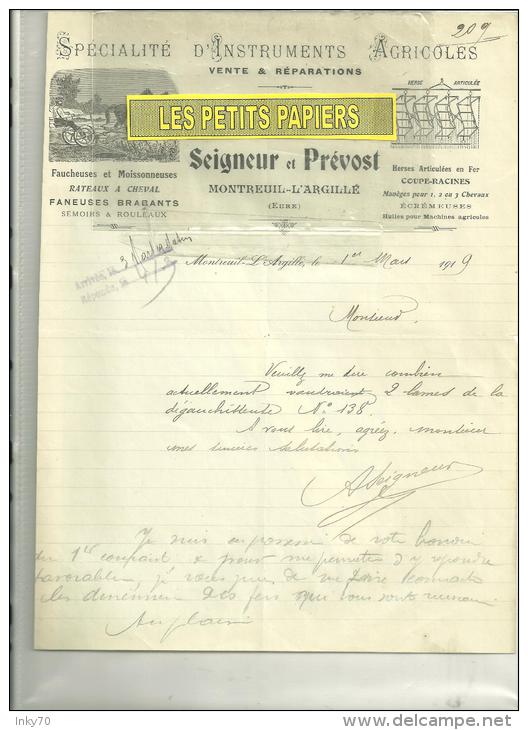 209
SPÉCIALITÉ D'INSTRUMENTS AGRICOLES
VENTE & RÉPARATIONS
HERSE ARTICULÉE
LES PETITS PAPIERS
Seigneur et Prévost
MONTREUIL-L'ARGILLÉ
(EURE)
Faucheuses et Moissonneuses
RATEAUX A CHEVAL
FANEUSES BRABANTS
SEMOIRS & ROULEAUX
Herses Articulées en Fer
COUPE-RACINES
Manèges pour 1, 2 ou 3 Chevaux
ÉCRÉMEUSES
Huiles pour Machines agricoles
Arrivée, le
Répondu, le
Montreuil-L'Argillé, le 1er Mars 1919
Monsieur
Veuillez me dire combien
actuellement vaudraient 2 lames de la
dégauchisseuse No 138.
A vous lire, agréez, monsieur
mes sincères salutations
A Seigneur
Je suis en possession de votre honorée
du 1er courant & pour me permettre d'y répondre
favorablement, je vous prie de me faire connaître
les dimensions des fers qui vous sont
Au plaisir
Inky70
www.delcampe.net